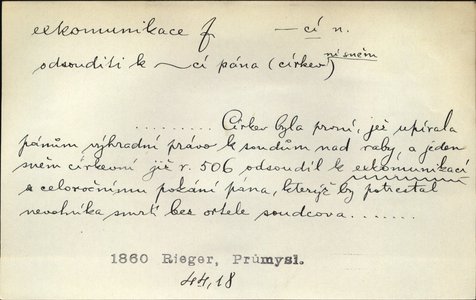 exkomunikace f —cí n.
odsouditi k ~cí pána (církevní sněm)
......... Církev byla první, jež upírala
pánům výhradní právo k soudům nad raby, a jeden
sněm církevní již r. 506, odsoudil k exkomunikací
a celoročnímu pokání pána, kterýž by potrestal
nevolníka smrtí bez ortele soudcova.......
1860 Rieger, Průmysl.
44,18